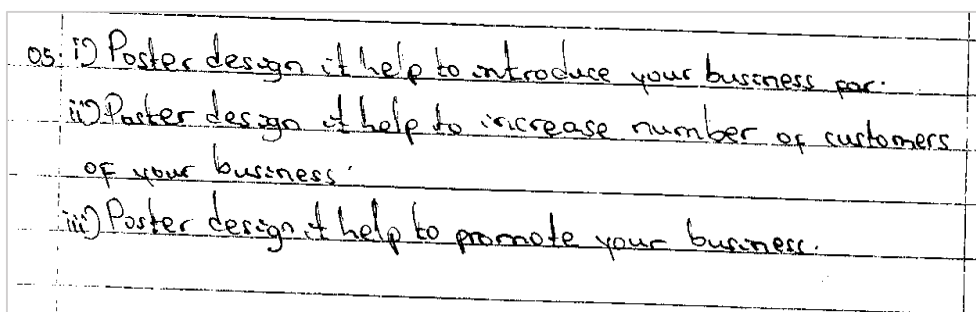 05. i) Poster design it help to introduce your business for.
ii) Poster design it help to increase number of customers
of your business.
iii) Poster design it help to promote your business.